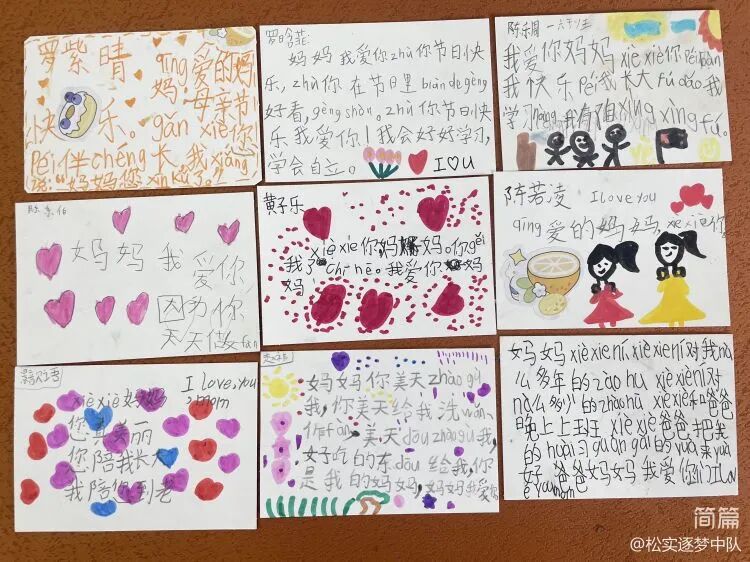 罗紫晴 qīng爱的妈
妈:母亲节
快乐。gǎn xiè您
péi伴chéng长,我xiǎng
说:“妈妈您xīn苦了。”
罗晗菲:
妈妈我爱你zhù你节日快
乐,zhù你在节日里biàn de gèng
好看,gèng shòu。zhù你节日快
乐我爱你!我会好好学习,
学会自立。 I♡u
我爱你妈妈xiè xiè你péi bàn
我快乐péi我长大fǔ dǎo我
学习
xìng fú.
妈妈 我 爱你
因为你
天天做fàn
黄子乐
xiè xie你妈妈。你gěi
我了chī hē。我爱你妈
妈
陈若凌 I love you
qīng爱的妈妈,xiè xiè你
xiè xiè妈妈 I love you
,mom
您真美丽
您陪我长大
我陪你到老
妈妈你美天zhào gù
我,你美天给我洗wǎn,
作fàn,美天dōu zhào gù我,
好吃的东 dōu给我,你
是我的妈妈,妈妈我爱你
妈妈xiè xie ní xiè xie ní对我nà
么多年的zào hu xiè xiè ní对
nà么多 的zhào hù xiè xiè和爸爸
晚上上班 xiè xiè爸爸把我
的huài习guàn gǎi的
好 爸爸妈妈我爱你们I Lov
e you mom
简篇
@松实逐梦中队